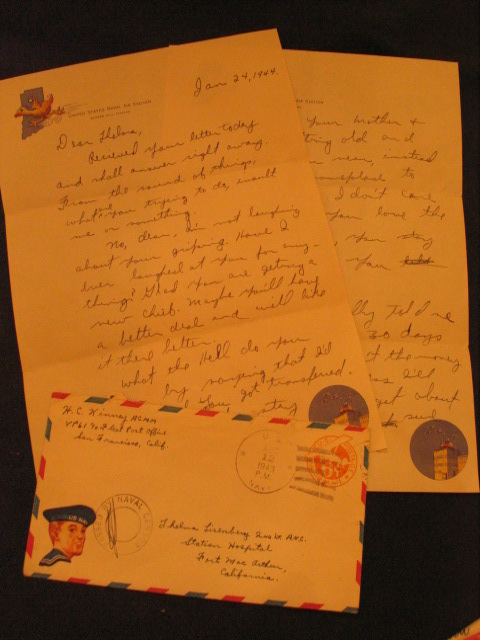 UNITED STATES NAVAL AIR STATION
Jan 24, 1944.
Dear Thelma,
Received your letter today
and shall answer right away.
From the sound of things,
what're you trying to do, insult
me or something.
No, dear, I'm not laughing
about your griping. Have I
ever laughed at you for any-
thing? Glad you are getting a
new chief. Maybe you'll have
a better deal and will like
it there better.
What the Hell do you
by saying that I'd
you got transferred.
stay
STATION
your mother &
old and
instead
to
I don't care,
you love the
you stay
you
told me
30 days
the money
I'd
about
H.C. Kinney
VP61 % Fleet Post Office
San Francisco, Calif.
U.S.
12
1943
P.M.
NAVY
PASSED BY NAVAL CENSOR
U.S. NAVY
6¢
Thelma
Station Hospital
Fort Mac Arthur,
California.